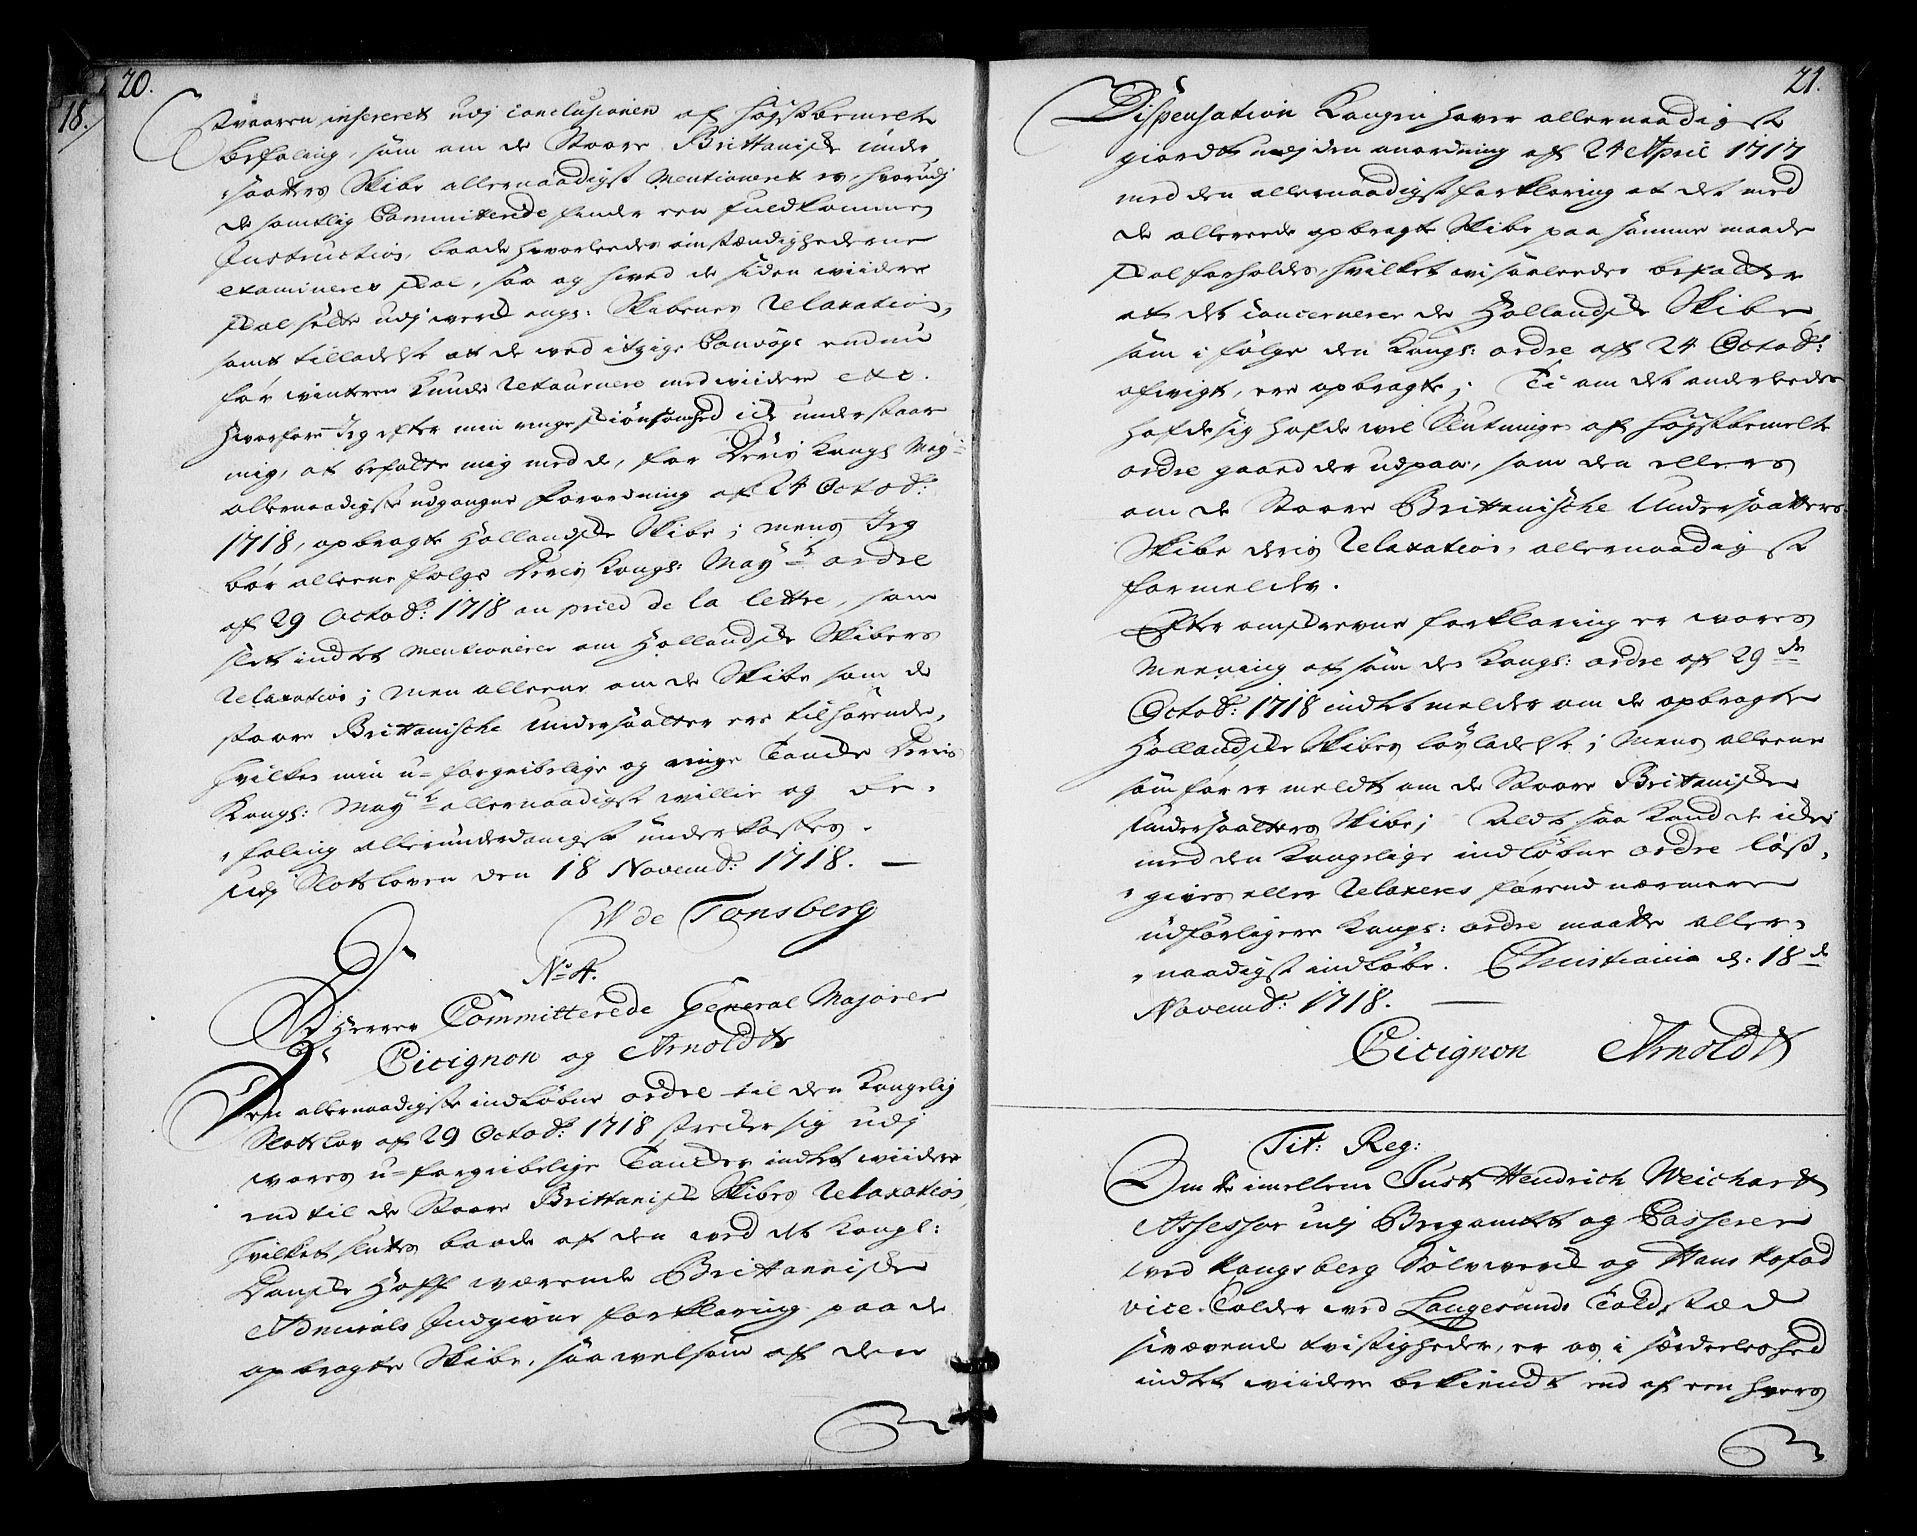 20.
18.
svaaren insereret udj Conclusionen af høystbemelte
befaling, som om de Stoore Brittaniske under
saatters Skibe allernaadigst Mentioneret er, hvorudj
de samtlig Committerede finder een fuldkommen
Instruction, baade hvorleedes omstændighederne
examineres skal, saa og hved de siden viidere
skal holde udj werck angl: Skibenes Relaxation,
samt tilladelse at de wed itzige Convoye endnu
før winteren kunde Retournere med viidere etc.
Hvorfore Jeg efter min ringe skiønsomhed icke understaar
mig, at befatte mig med de, for Deris Kongl May:tz
allernaadigste udgangne forordning af 24 Octob:
1718, opbragte Hollandske Skibe; mens Jeg
bør alleene følge Deris Kongl: May:tz ordre
af 29 Octob: 1718 au pried de la lettre, som
slet indtet Mentionerer om Hollandske Skibers
Relaxation; men alleene om de Skibe som de
stoore Brittanische Undersaatter ere tilhørende,
hvilket min u-forgribelige og ringe Tancke Deris
Kongl: May:tz allernaadigst willie og be-
faling allerunderdanigst underkastes.
Udj Slotsloven den 18 Novemb: 1718. —
W de Tonsberg
No 4.
Vi Herrer Committerede General Majorer
Cicignon og Arnoldt
Den allernaadigste indkobne ordre til den Kongelig
Slotslov af 29 Octob: 1718 strecker sig udj
wores u-forgribelige Tancker indtet wiidere
end til de Stoore Brittaniske Skibes Relaxation,
hvilket sluttes baade af den wed det Kongl:
Danske Hoff wærende Brittanniske
Admirals Indgivne forklaring paa de
opbragte Skibe, saa welsom af den
21.
Dispensation Kongen haver allernaadigst
giordt udj den anordning af 24 April 1717
med den allernaadigst forklaring at det med
de allereede opbragte Skibe paa samme maade
skal forholdes, hvilket wi saaleedes befatter
at det Concernerer de Hollandske Skibe
som i følge den Kongl: ordre af 24 Octob:
afvigt, ere opbragte; Ti om det anderleedes
hafde sig hafde wel Slutninge af høystbemelte
ordre gaaed der udpaa, som den ellers
om de Stoore Brittanische Undersaatters
Skibe deris Relaxation, allernaadigst
formelder.
Efter omskrevne forklaring er wores
Meening at som den Kongl: ordre af 29 de
Octob: 1718 indtet melder om de opbragte
Hollandske Skibes løsladelse; Mens alleene
som før er meldt om de Stoore Brittaniske
Undersaatters Skibe; Altsaa kand de icke
med den Kongelige indløbne ordre løs-
gives eller Relaxeres førend nærmere
udførligere Kongl: ordre maatte aller-
naadigst indløbe. Christiania d. 18 de
Novemb: 1718. —
Cicignon Arnoldt
Tit: Reg:
Om de imellem Just Hendrich Weichardt
Assessor udj Bergamtet og Casserer
wed Kongsberg Sølvwerck og Hans Hofod
vice-Tolder wed Langesunds Toldstæd
swævende tvistigheder, er os i særdeeleshed
indtet wiidere bekiendt end af een hvers